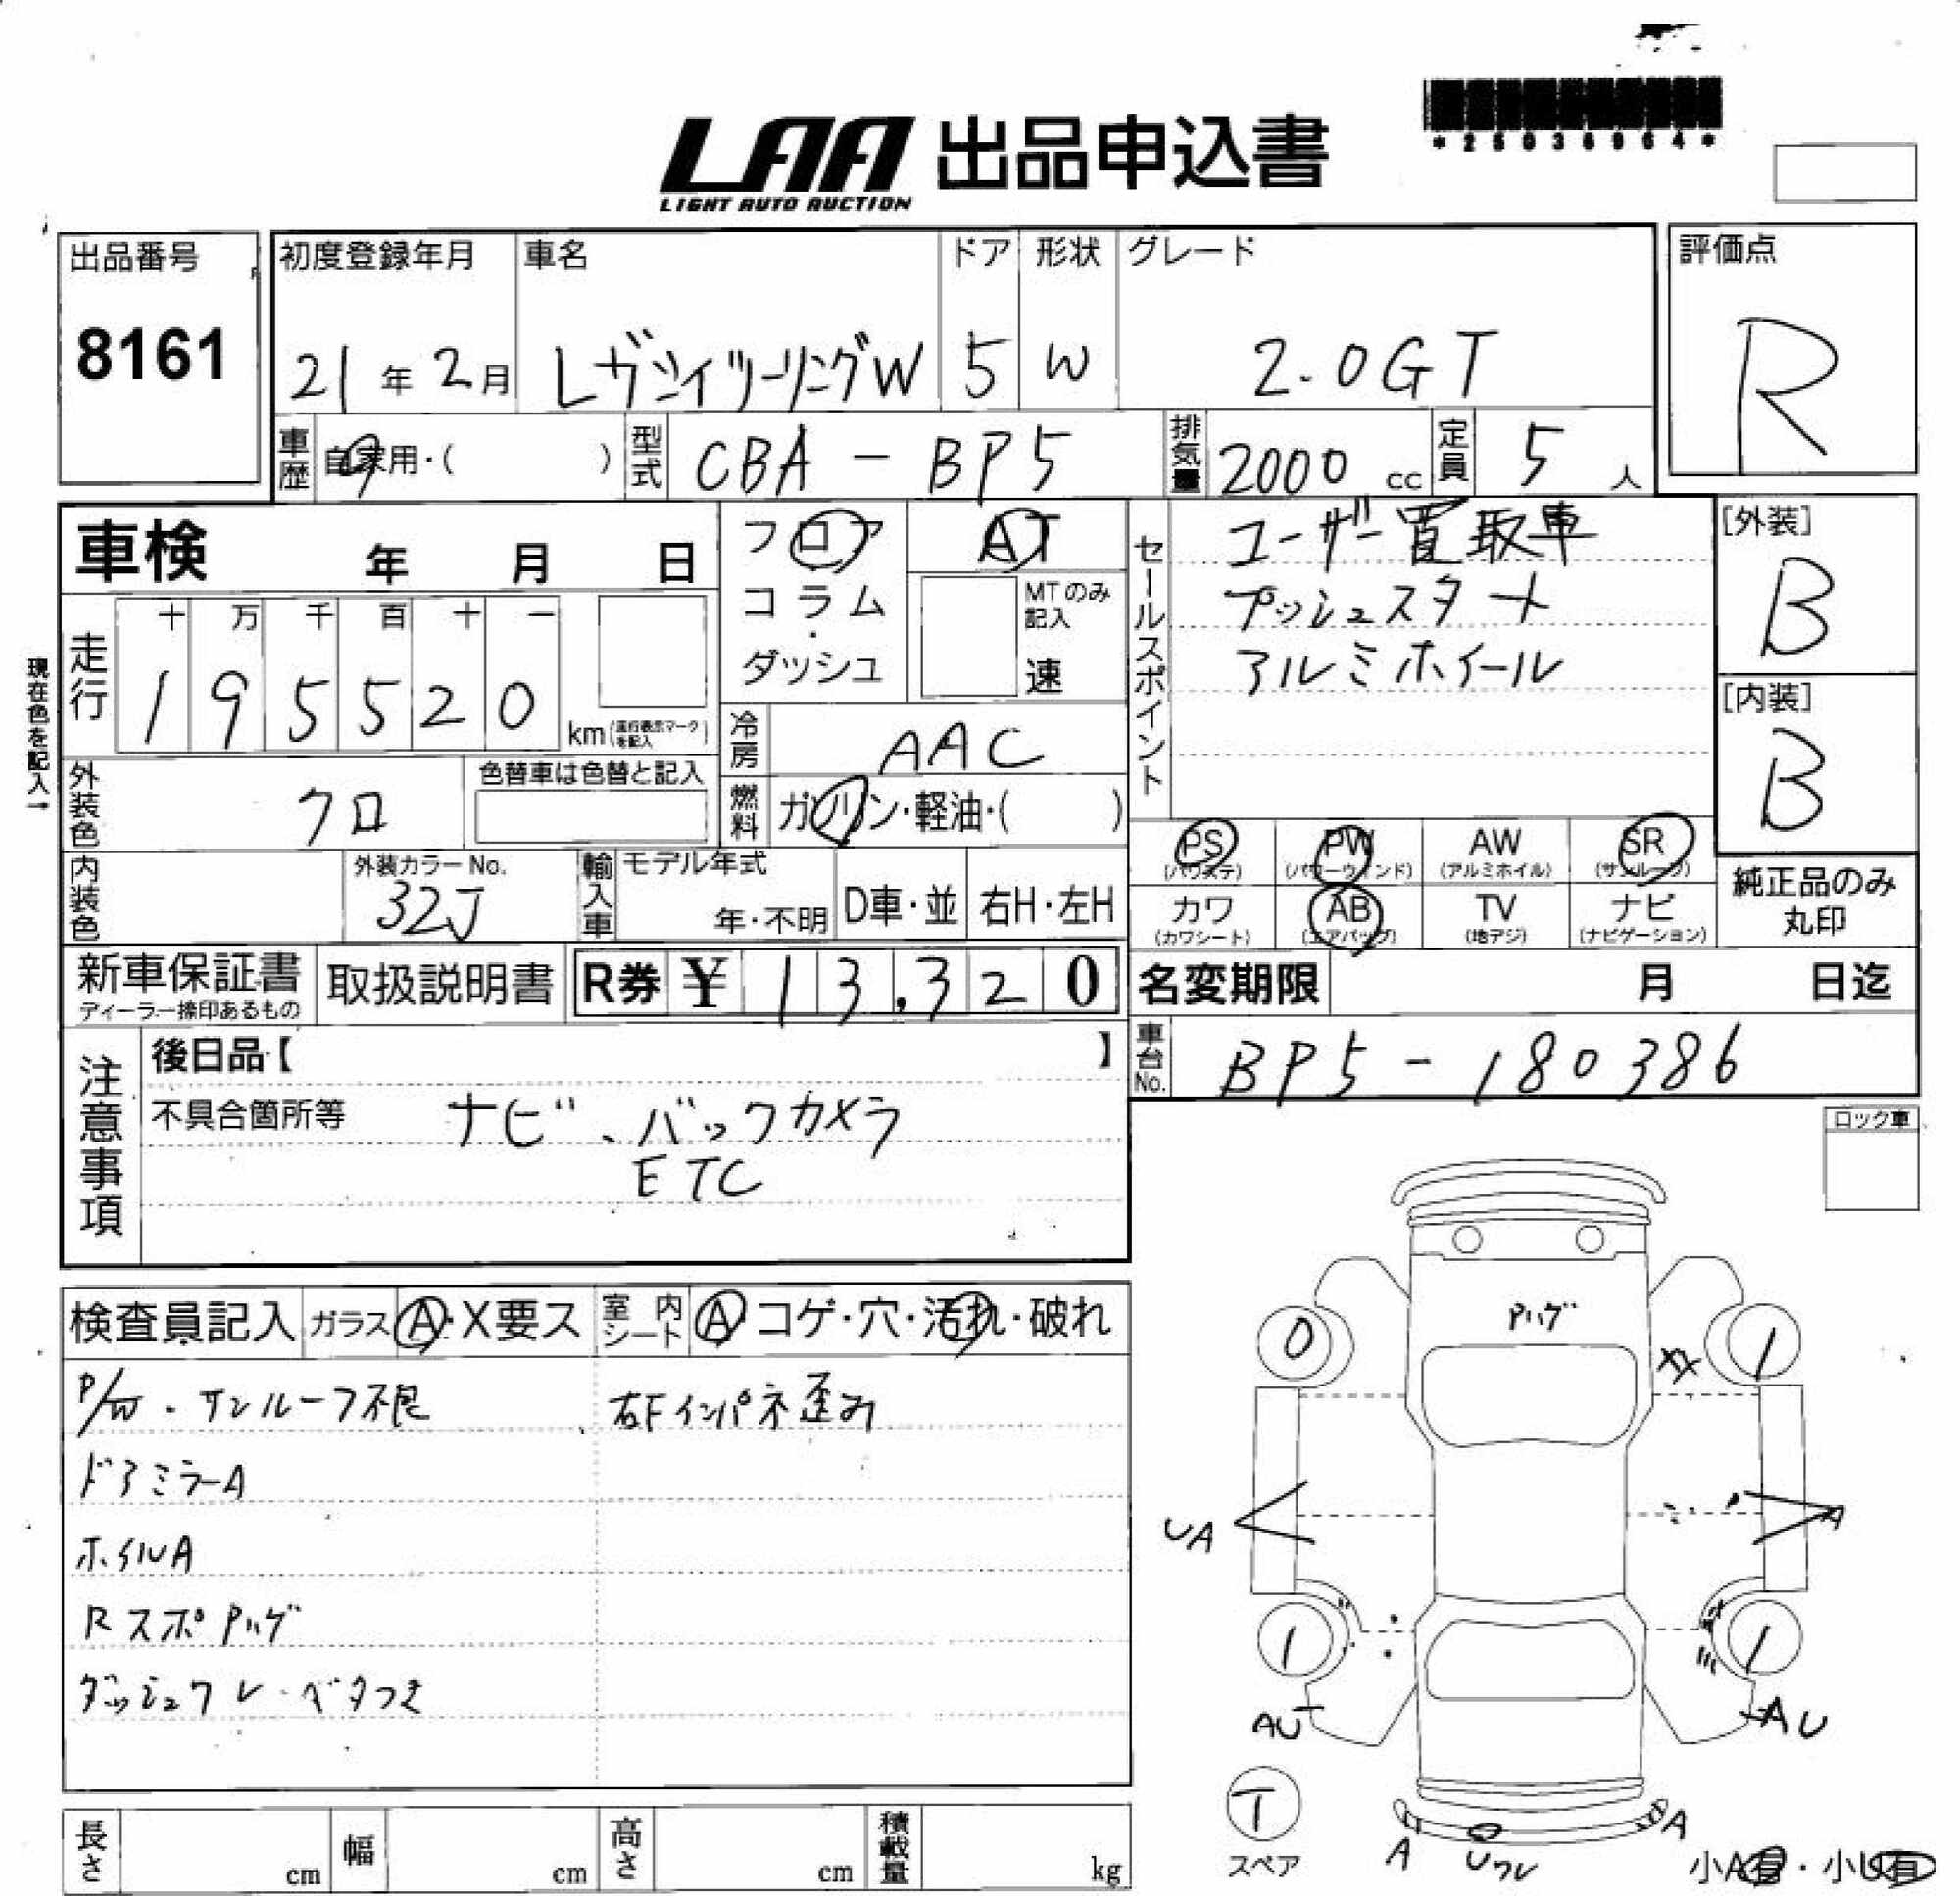 LAA 出品申込書
LIGHT AUTO AUCTION
*25036964*
出品番号
8161
初度登録年月
21年2月
車名
レガシィツーリングW
ドア
5
形状
W
グレード
2.0GT
評価点
R
車歴
自家用・( )
型式
CBA - BP5
排気量
2000 cc
定員
5 人
車検 年 月 日
フロア
コラム
・
ダッシュ
AT
MTのみ
記入
速
セールスポイント
ユーザー買取車
プッシュスタート
アルミホイール
[外装]
B
[内装]
B
現在色を記入→
走行
十 万 千 百 十 一
1 9 5 5 2 0
km(走行表示マークを記入)
冷房
AAC
燃料
ガソリン・軽油・( )
外装色
クロ
色替車は色替と記入
内装色
外装カラーNo.
32J
輸入車
モデル年式
年・不明
D車・並
右H・左H
PS
(パワステ)
PW
(パワーウィンド)
AW
(アルミホイル)
SR
(サンルーフ)
カワ
(カワシート)
AB
(エアバッグ)
TV
(地デジ)
ナビ
(ナビゲーション)
純正品のみ
丸印
新車保証書
ディーラー捺印あるもの
取扱説明書
R券 ¥ 13,320
名変期限 月 日迄
車台No.
BP5-180386
注意事項
後日品【 】
不具合箇所等
ナビ、バックカメラ
ETC
ロック車
検査員記入
ガラス A・X要ス
室内シート A コゲ・穴・汚れ・破れ
P/W・サンルーフ不良
右Fインパネ歪み
ドアミラーA
ホイルA
RスポPハゲ
ダッシュワレ・ベタつき
Pハゲ
0
1
XX
UA
A
1
1
AU
AU
T
スペア
A
Uワレ
A
小A有・小U有
長さ cm
幅 cm
高さ cm
積載量 kg